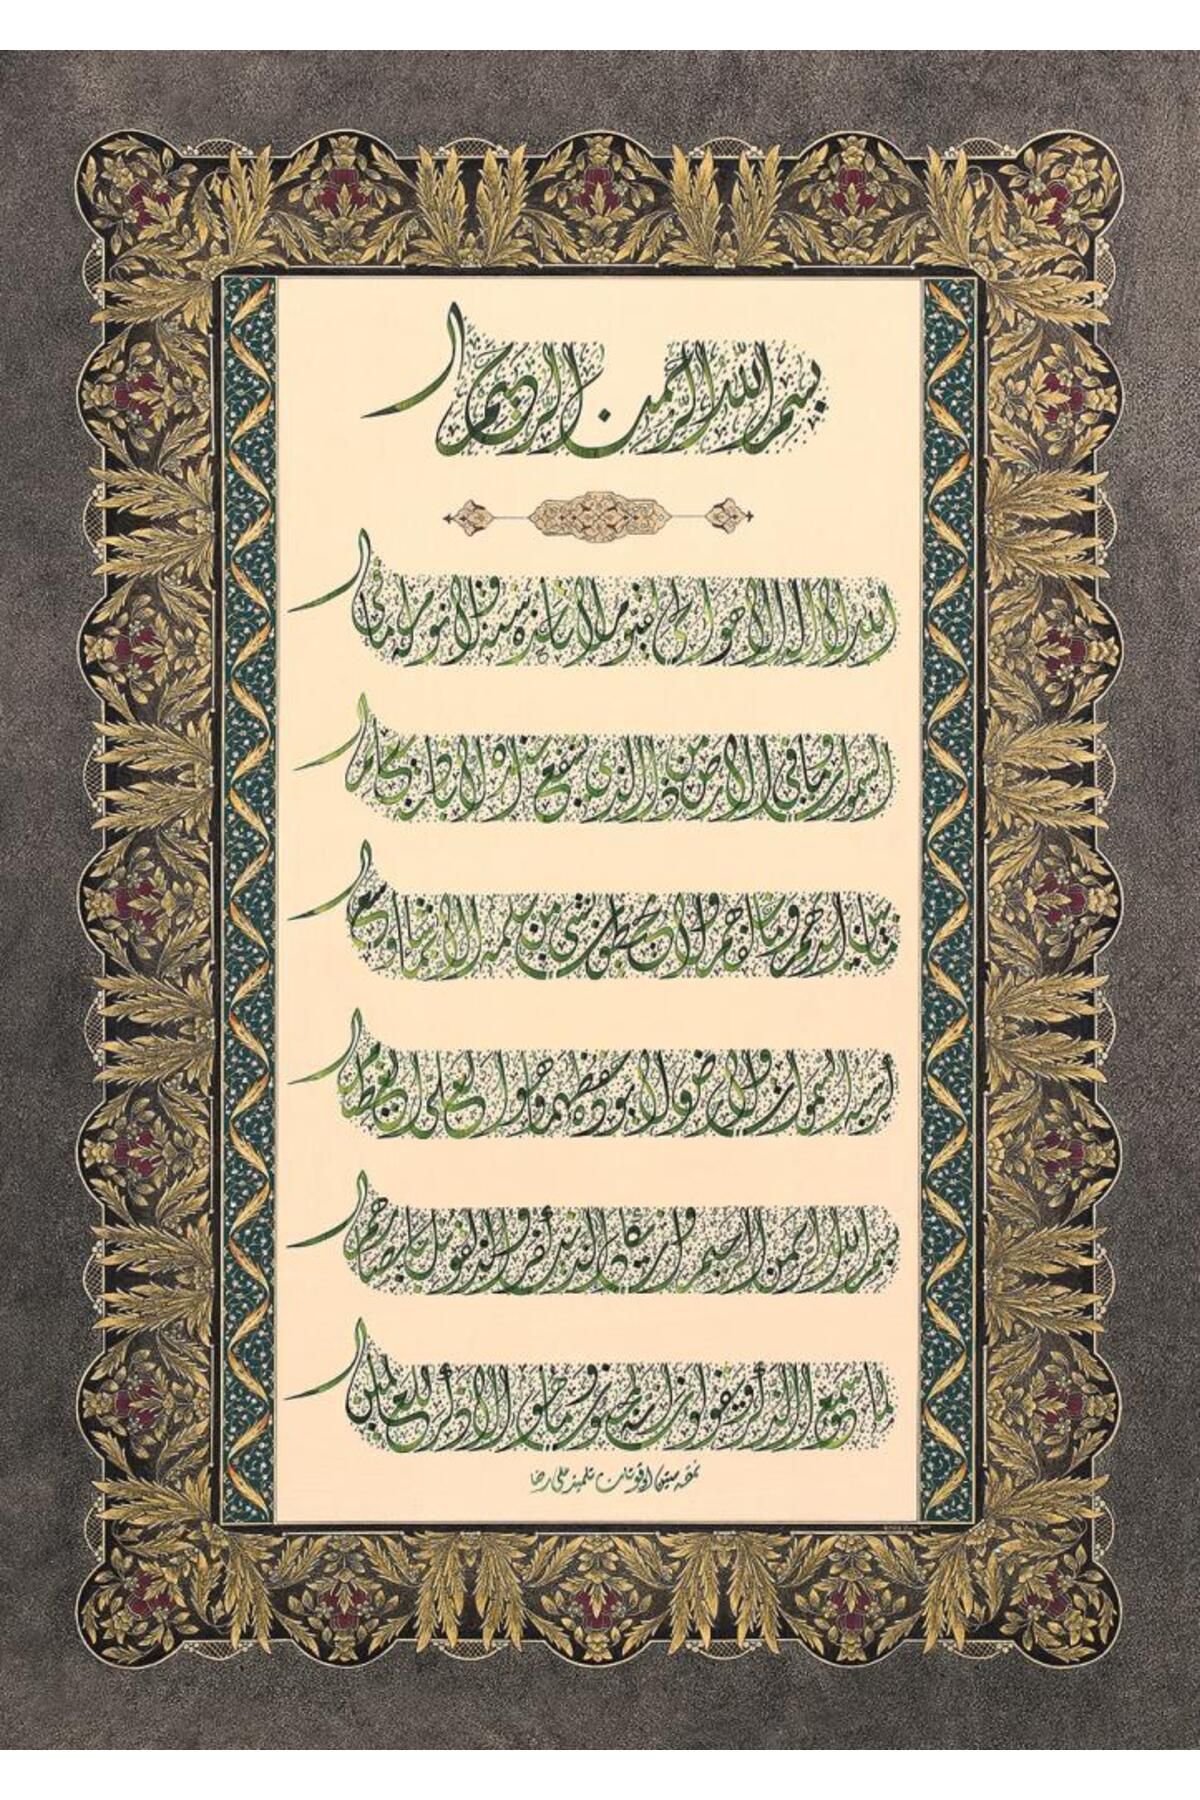 بسم الله الرحمن الرحيم
الله لا إله إلا هو الحي القيوم لا تأخذه سنة ولا نوم له ما في
السموات وما في الأرض من ذا الذي يشفع عنده إلا بإذنه يعلم ما
بين أيديهم وما خلفهم ولا يحيطون بشيء من علمه إلا بما شاء وسع
كرسيه السموات والأرض ولا يؤده حفظهما وهو العلي العظيم
بسم الله الرحمن الرحيم وإن يكاد الذين كفروا ليزلقونك بأبصارهم
لما سمعوا الذكر ويقولون إنه لمجنون وما هو إلا ذكر للعالمين
نمقه تلميذ علي رضا